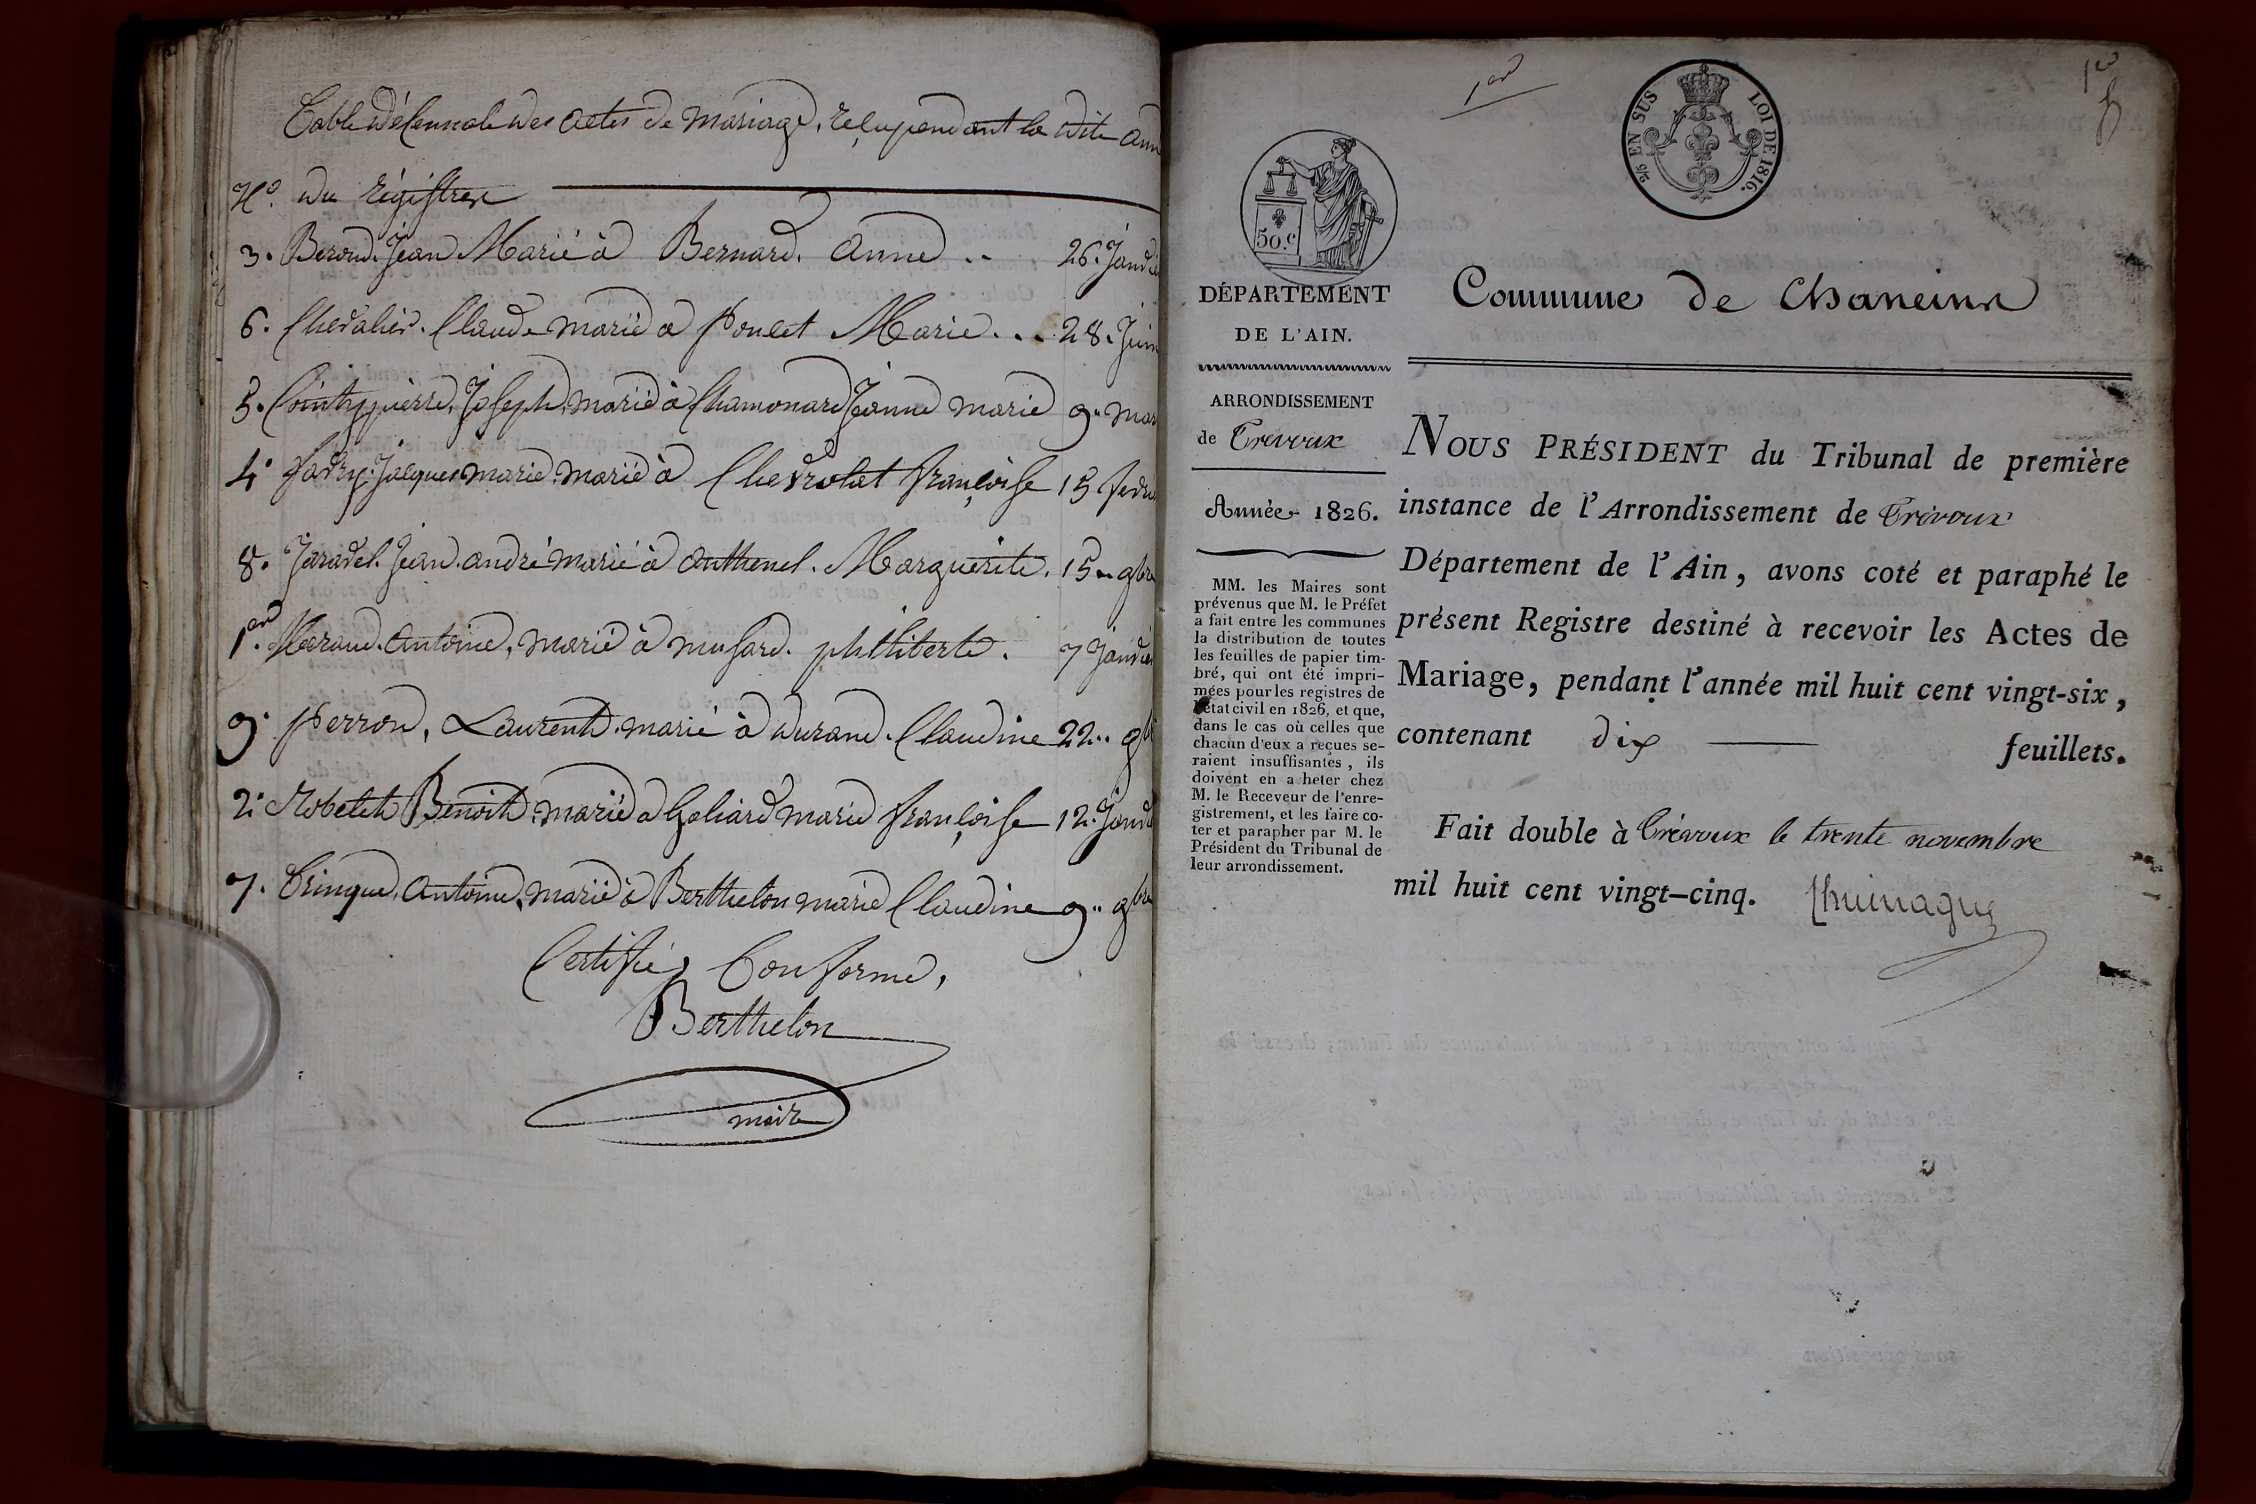 Table décennale des actes de mariage, reçu pendant la dite ann
No. du régistres
3. Beroud. Jean Marié à Bernard. Anne .. 26. Janvie
6. Chevalier. Claude marié a poncet Marie. .. 28. Juin
5. Joseph, marié à Chamonard Jeanne marie 9 .. mar
4. favry. Jacques marie. marié à Chevrolat françoise 15 fevr
8. Jaravel. Jean. andré marié à Authenel. Marguérite. 15 .. 9bre
1er. Meraud. Antoine, marié à musard. philiberte. 7 Janvier
9. perron, Laurent. marié à durand. Claudine 22 .. 9b
2. Robelet Benoit. marié a Galiard marie françoise 12. Janvi
7. Trinque, Antoine, marié à Berthelon marie Claudine 9 .. 9bre
Certifié, Conforme,
Berthelon
maire
1er
1er
2/6 EN SUS
LOI DE 1816.
50.c
DÉPARTEMENT
DE L'AIN.
ARRONDISSEMENT
de Trevoux
Année 1826.
MM. les Maires sont
prévenus que M. le Préfet
a fait entre les communes
la distribution de toutes
les feuilles de papier tim-
bré, qui ont été impri-
mées pour les registres de
l'état civil en 1826, et que,
dans le cas où celles que
chacun d'eux a reçues se-
raient insuffisantes, ils
doivent en a heter chez
M. le Receveur de l'enre-
gistrement, et les faire co-
ter et parapher par M. le
Président du Tribunal de
leur arrondissement.
Commune de Chaneins
NOUS PRÉSIDENT du Tribunal de première
instance de l'Arrondissement de Trévoux
Département de l'Ain, avons coté et paraphé le
présent Registre destiné à recevoir les Actes de
Mariage, pendant l'année mil huit cent vingt-six,
contenant dix feuillets.
Fait double à Trévoux le trente novembre
mil huit cent vingt-cinq.